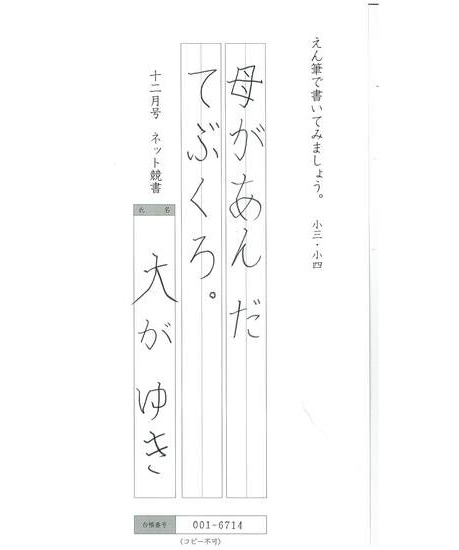 えん筆で書いてみましょう。 小三・小四
母があんだ
てぶくろ。
十二月号 ネット競書
氏 名
大がゆき
台帳番号 001-6714
(コピー不可)